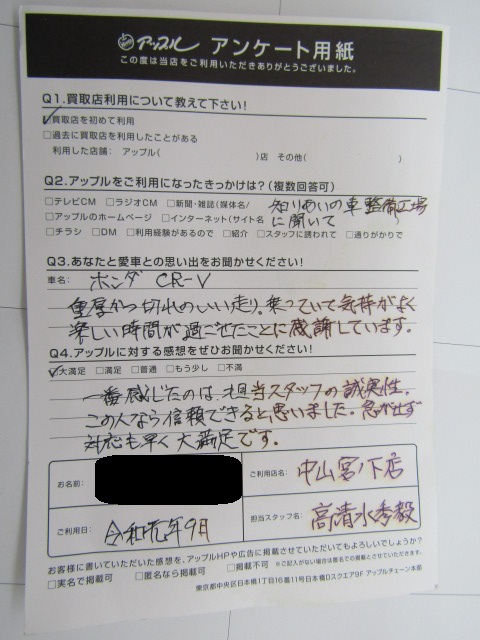 アップル アンケート用紙
この度は当店をご利用いただきありがとうございました。
Q1.買取店利用について教えて下さい!
☑買取店を初めて利用
□過去に買取店を利用したことがある
利用した店舗: アップル( )店 その他( )
Q2.アップルをご利用になったきっかけは?(複数回答可)
□テレビCM □ラジオCM □新聞・雑誌(媒体名/ 知り合いの車整備工場
□アップルのホームページ □インターネット(サイト名 に聞いて
□チラシ □DM □利用経験があるので □紹介 □スタッフに誘われて □通りがかりで
Q3.あなたと愛車との思い出をお聞かせください!
車名: ホンダ CR-V
重厚かつ切れのいい走り。乗っていて気持がよく
楽しい時間が過ごせたことに感謝しています。
Q4.アップルに対する感想をぜひお聞かせください!
☑大満足 □満足 □普通 □もう少し □不満
一番感じたのは、担当スタッフの誠実性。
この人なら信頼できると思いました。急がせず
対応も早く大満足です。
お名前:
ご利用店名: 中山宮ノ下店
ご利用日: 令和元年9月
担当スタッフ名: 高清水秀毅
お客様に書いていただいた感想を、アップルHPや広告に掲載させていただいてもよろしいでしょうか?
□実名で掲載可 □匿名なら掲載可 □掲載不可 ※ご記入がない場合は匿名での掲載とさせていただきます。
東京都中央区日本橋1丁目16番11号日本橋Dスクエア9F アップルチェーン本部